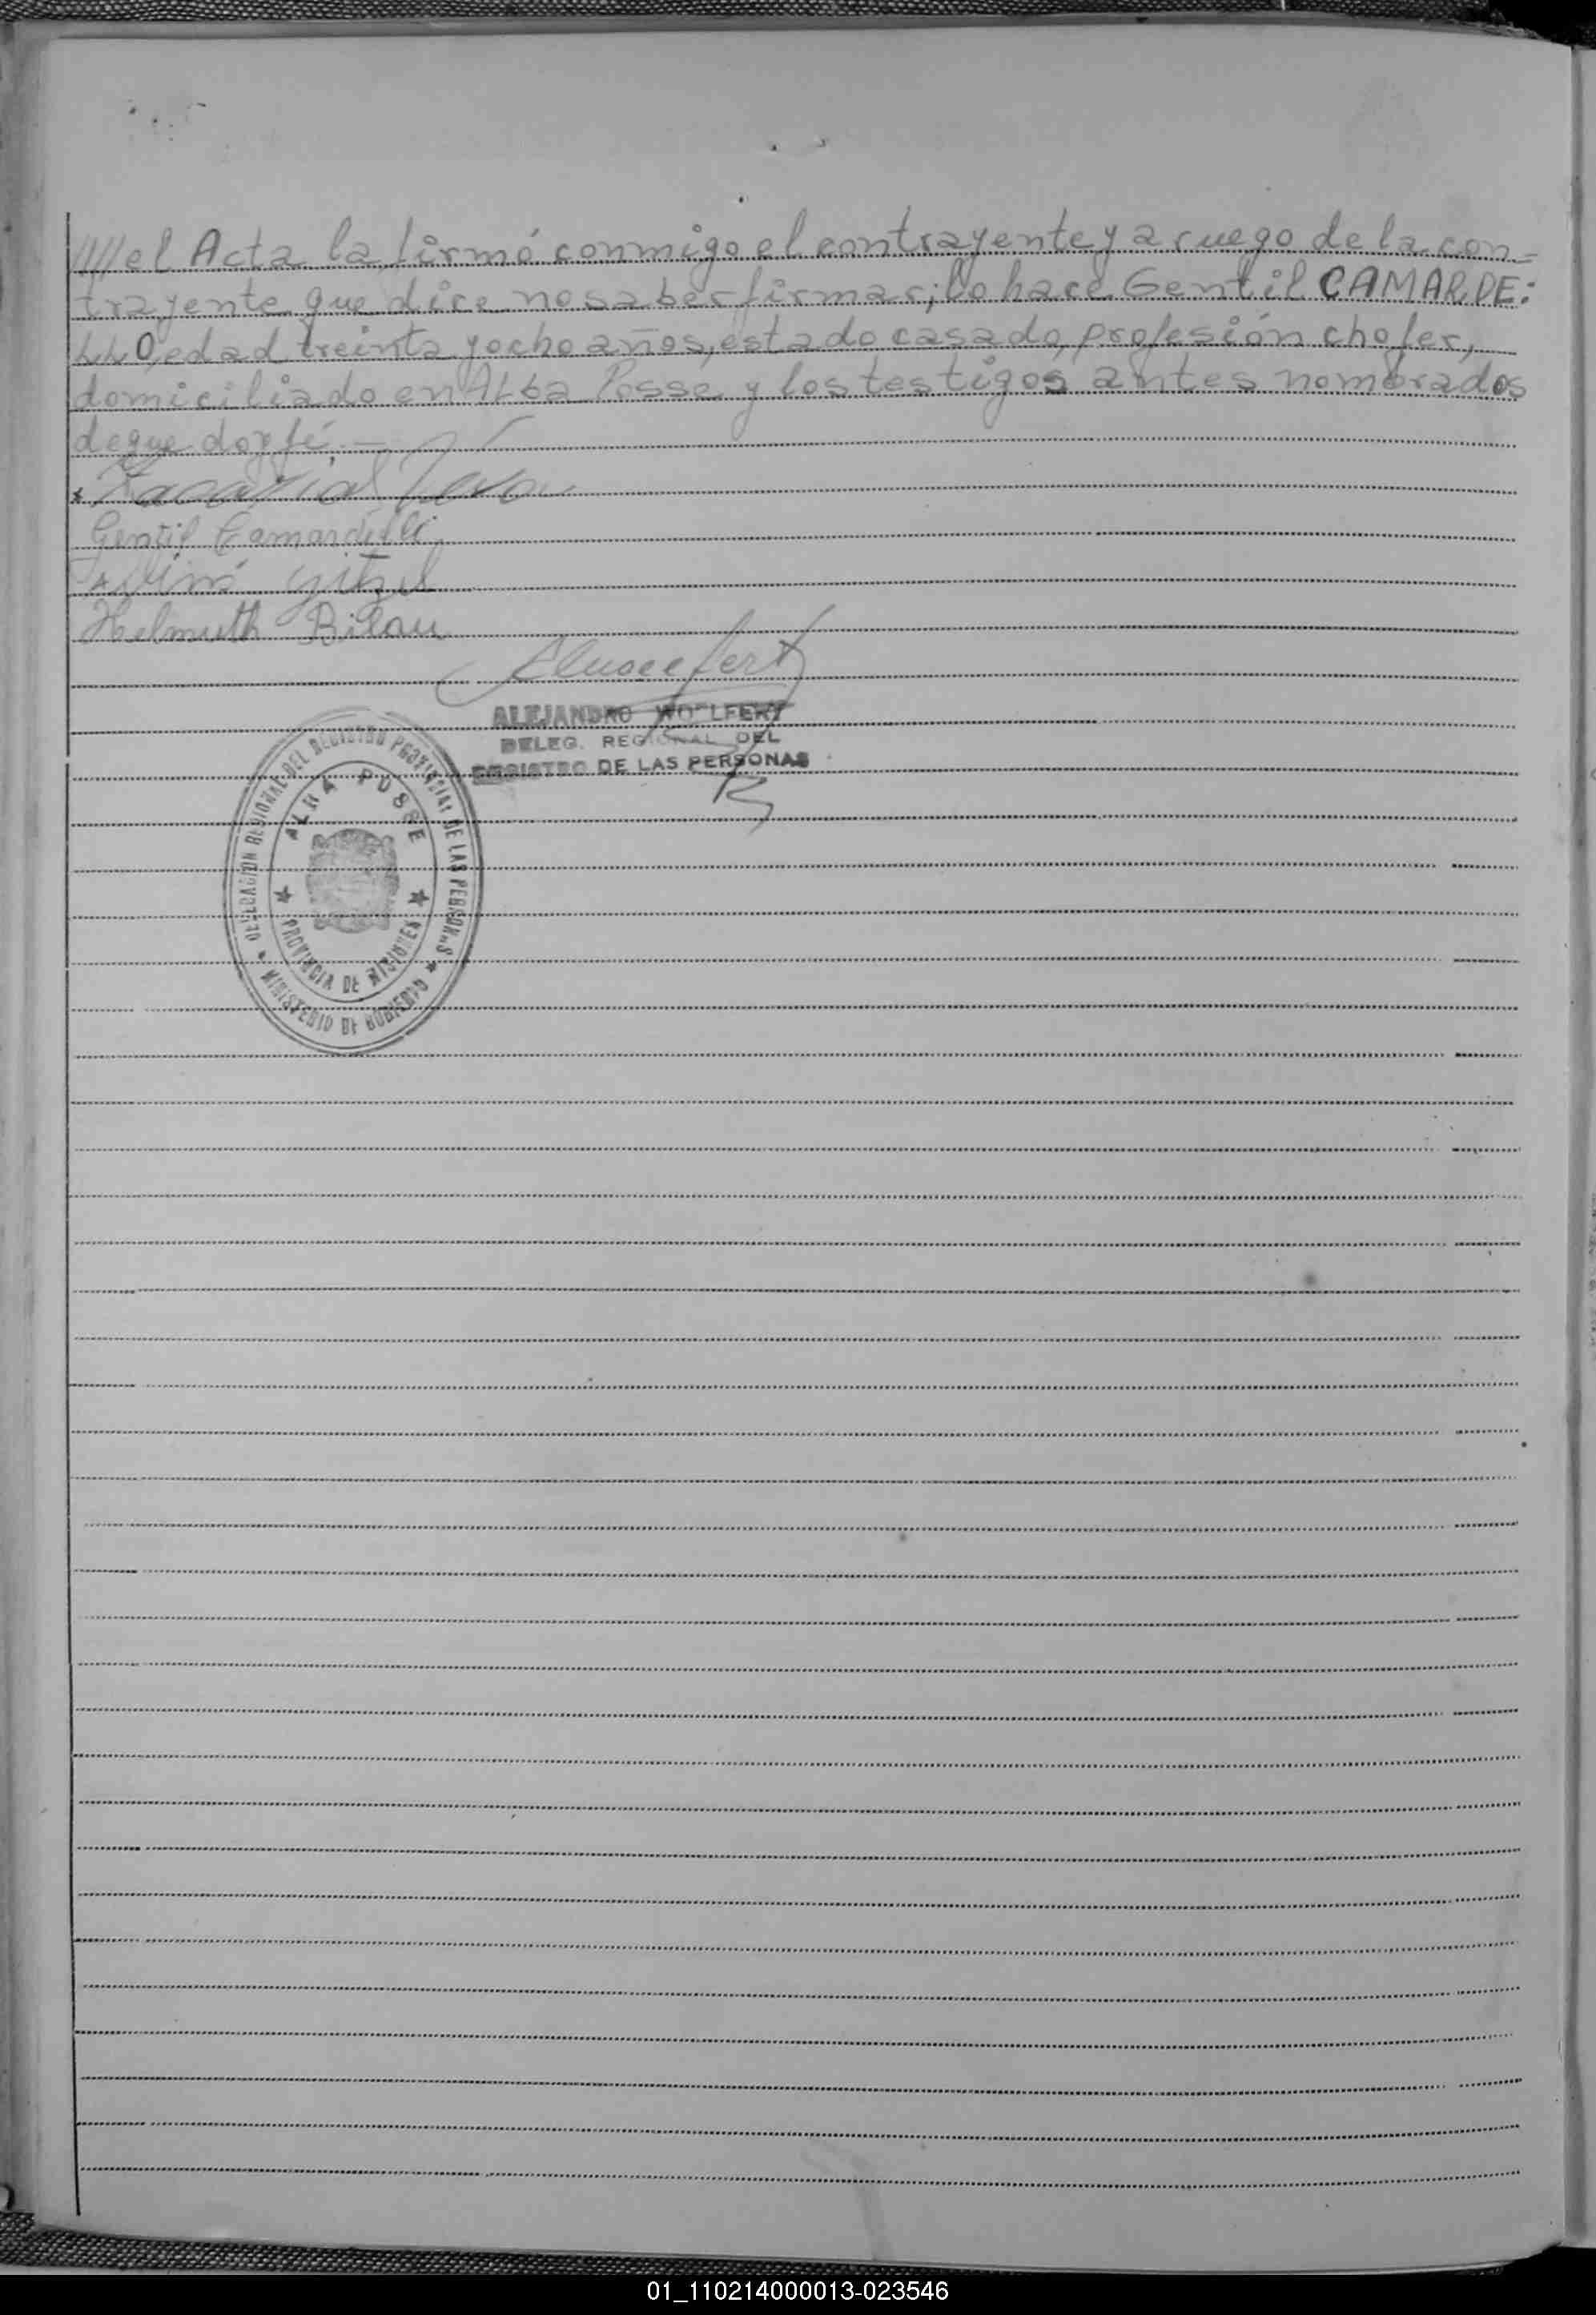 ////el Acta la firmó conmigo el contrayente y a ruego de la con=
trayente que dice no saber firmar; lo hace Gentil CAMARDE:
LLO, edad treinta y ocho años, estado casado, profesión chofer,
domiciliado en Alba Posse y los testigos antes nombrados
de que doy fé.—
Gentil Camardelli
Helmuth Bilau
ALEJANDRO WOELFERT
DELEG. REGIONAL DEL
REGISTRO DE LAS PERSONAS
DELEGACION REGIONAL DEL REGISTRO PROVINCIAL DE LAS PERSONAS
ALBA POSSE
PROVINCIA DE MISIONES
MINISTERIO DE GOBIERNO
01_110214000013-023546